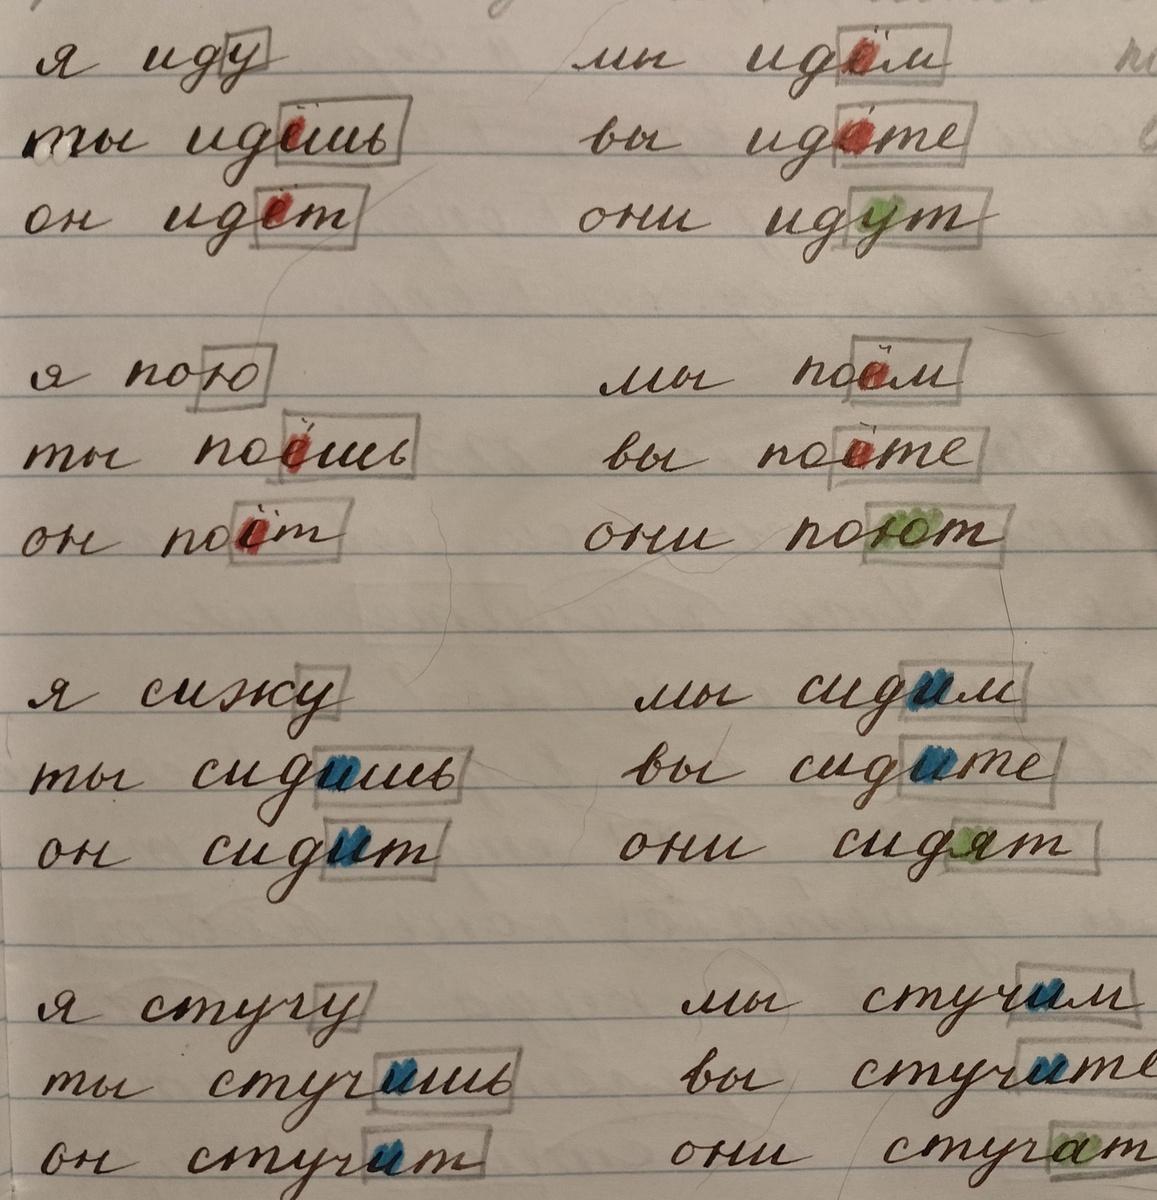 я иду мы идём
ты идёшь вы идёте
он идёт они идут
я пою мы поём
ты поёшь вы поёте
он поёт они поют
я сижу мы сидим
ты сидишь вы сидите
он сидит они сидят
я стучу мы стучим
ты стучишь вы стучите
он стучит они стучат